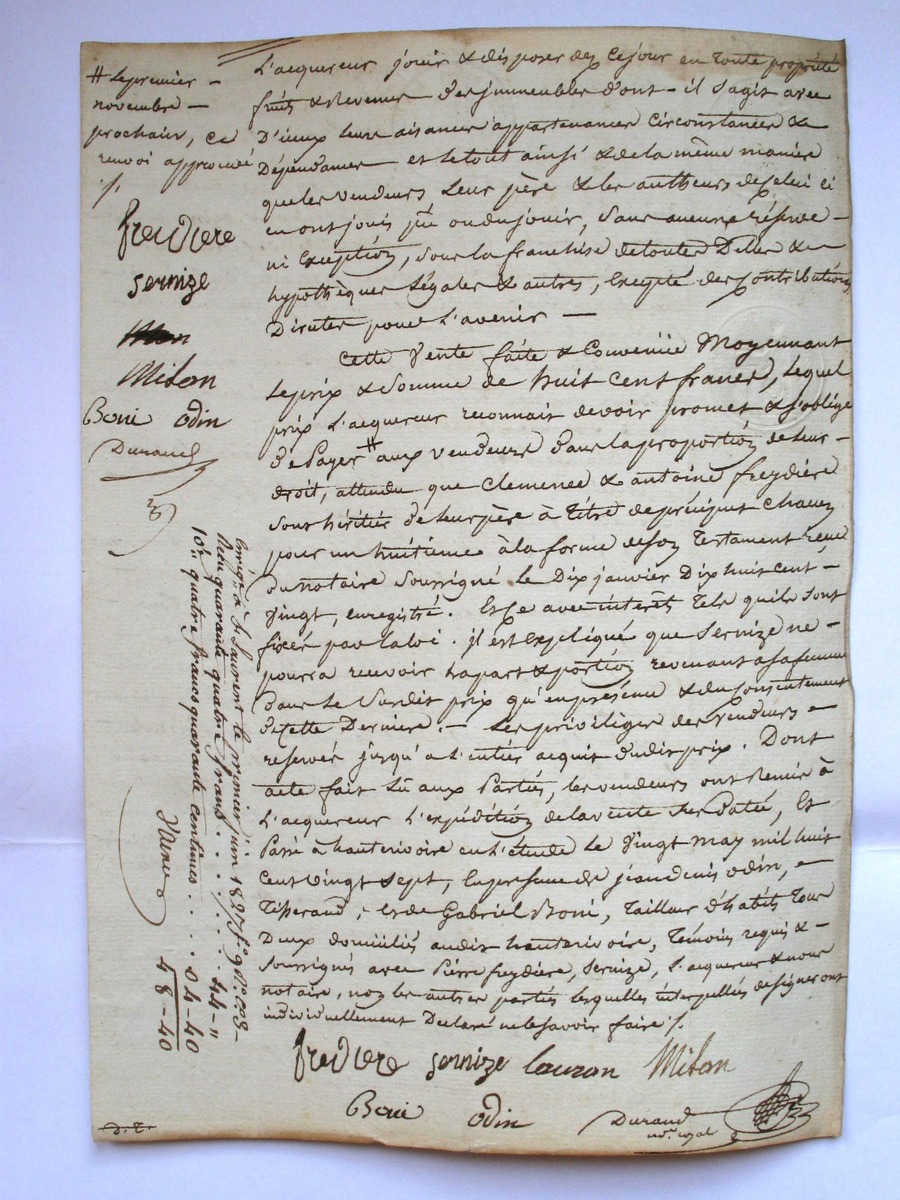 # Le premier –
novembre –
prochain, ce
renvoi approuvé
freidiere
sernize
Milon
Boni odin
Durand
L'acquereur jouir & disposer dez ce jour en toute propriété
fruits & revenus des jmmeubles dont – il s'agit avec
D'iceux leurs aisances appartenances circonstances &
Dépendances et le tout ainsi & de la même maniere
que les vendeurs, leur père & les autheurs de celui ci
en ont jouis pû ou du jouir, sans aucune réserve –
ni exception, sous la franchise de toutes Dettes & –
hypothèques Légales & autres, Excepté des contributions
Directes pour L'avenir –
Cette Vente faite & Convenüe Moyennant
Le prix & Somme de huit cent francs, Lequel
prix L'acquereur reconnait devoir promet & s'oblige
de Payer # aux vendeurs dans la proportion de leur –
droit, attendu que Clemence & antoine freydière
sont héritiers de leur père à titre de préciput chacun
pour un huitieme à la forme de son Testament reçu
du notaire soussigné le Dix janvier Dix huit cent –
Vingt, enregistré. Et ce avec interêts tels qu'ils sont
fixés par la loi. jl est Expliqué que Sernize ne –
pourra recevoir la part & portion revenant a sa femme
dans le Susdit prix qu'en présence & du consentement
de Cette Derniere. – Les privilèges des vendeurs –
reservés jusqu'a l'entier acquit dudit prix. Dont
acte fait Lû aux Parties, les vendeurs ont Remis à
L'acquereur L'expédition de la vente sus Datée, Et
Passé à hauterivoire en l'étude le Vingt may mil huit
Cent vingt sept, En présence de jean denis odin, –
Tisserand, & de Gabriel Boni, Tailleur d'habits Tous
Deux domiciliés audit hauterivoire, Témoins requis & –
Soussignés avec Pierre freydière, Sernize, L'acquereur & nous
notaire, non les autres parties lesquelles interpellés de signer ont
individuellement Declaré ne le savoir faire /.
freidiere sernize Lauran Milon
Boni odin Durand
not. royal
D. T.
Enregé à St Laurent le premier juin 1827 fo 90
Reçu quarante quatre francs . . . . 44 – "
10e quatre francs quarante centimes . . . 04 – 40
48 – 40